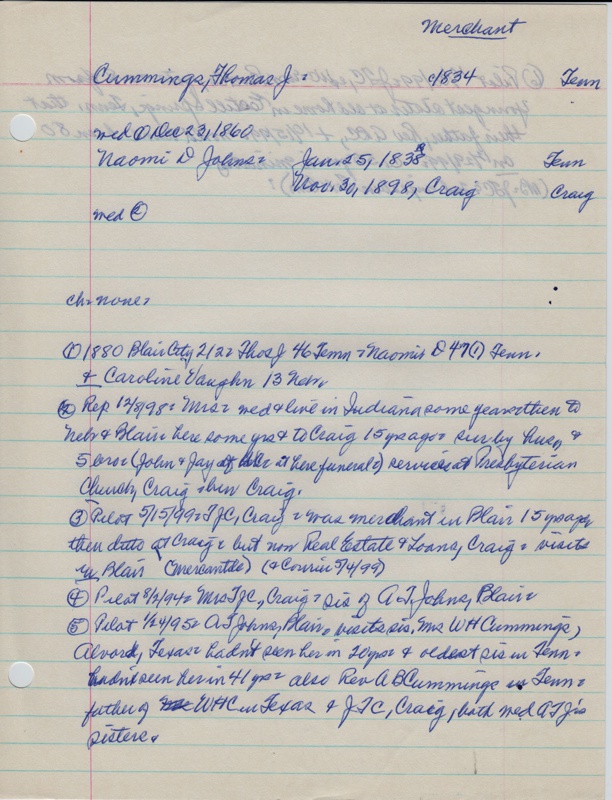 Merchant
Cummings, Thomas J = c1834 Tenn
med ① Dec 23, 1860
Naomi D Johns = Jan. 25, 1838 Tenn
Nov. 30, 1898, Craig Craig
med ②
ch = none =
① 1880 Blair City 212 = Thos J 46 Tenn = Naomi D 47 (?) Tenn.
& Caroline Vaughn 13 Nebr
② Rep 12/8/98 = Mrs = med & live in Indiana some years = then to
Nebr & Blair = here some yrs & to Craig 15 yrs ago = sur by husb &
5 bros = (John & Jay at here funeral =) services at Presbyterian
Church, Craig = bur Craig.
③ Pilot 5/15/99 = TJC, Craig = was merchant in Blair 15 yrs ago,
then ditto at Craig = but now Real Estate & Loans, Craig = visits
in Blair (Mercantile) (& Courier 5/4/99)
④ Pilot 8/2/94 = Mrs TJC, Craig = sis of A T Johns, Blair =
⑤ Pilot 1/24/95 = A T Johns, Blair = visits sis, Mrs W H Cummings,
Alvord, Texas = hadn't seen her in 20 yrs & oldest sis in Tenn =
hadn't seen her in 41 yrs = also Rev A B Cummings in Tenn =
father of WHC in Texas & JTC, Craig, both med ATJ's
sisters.